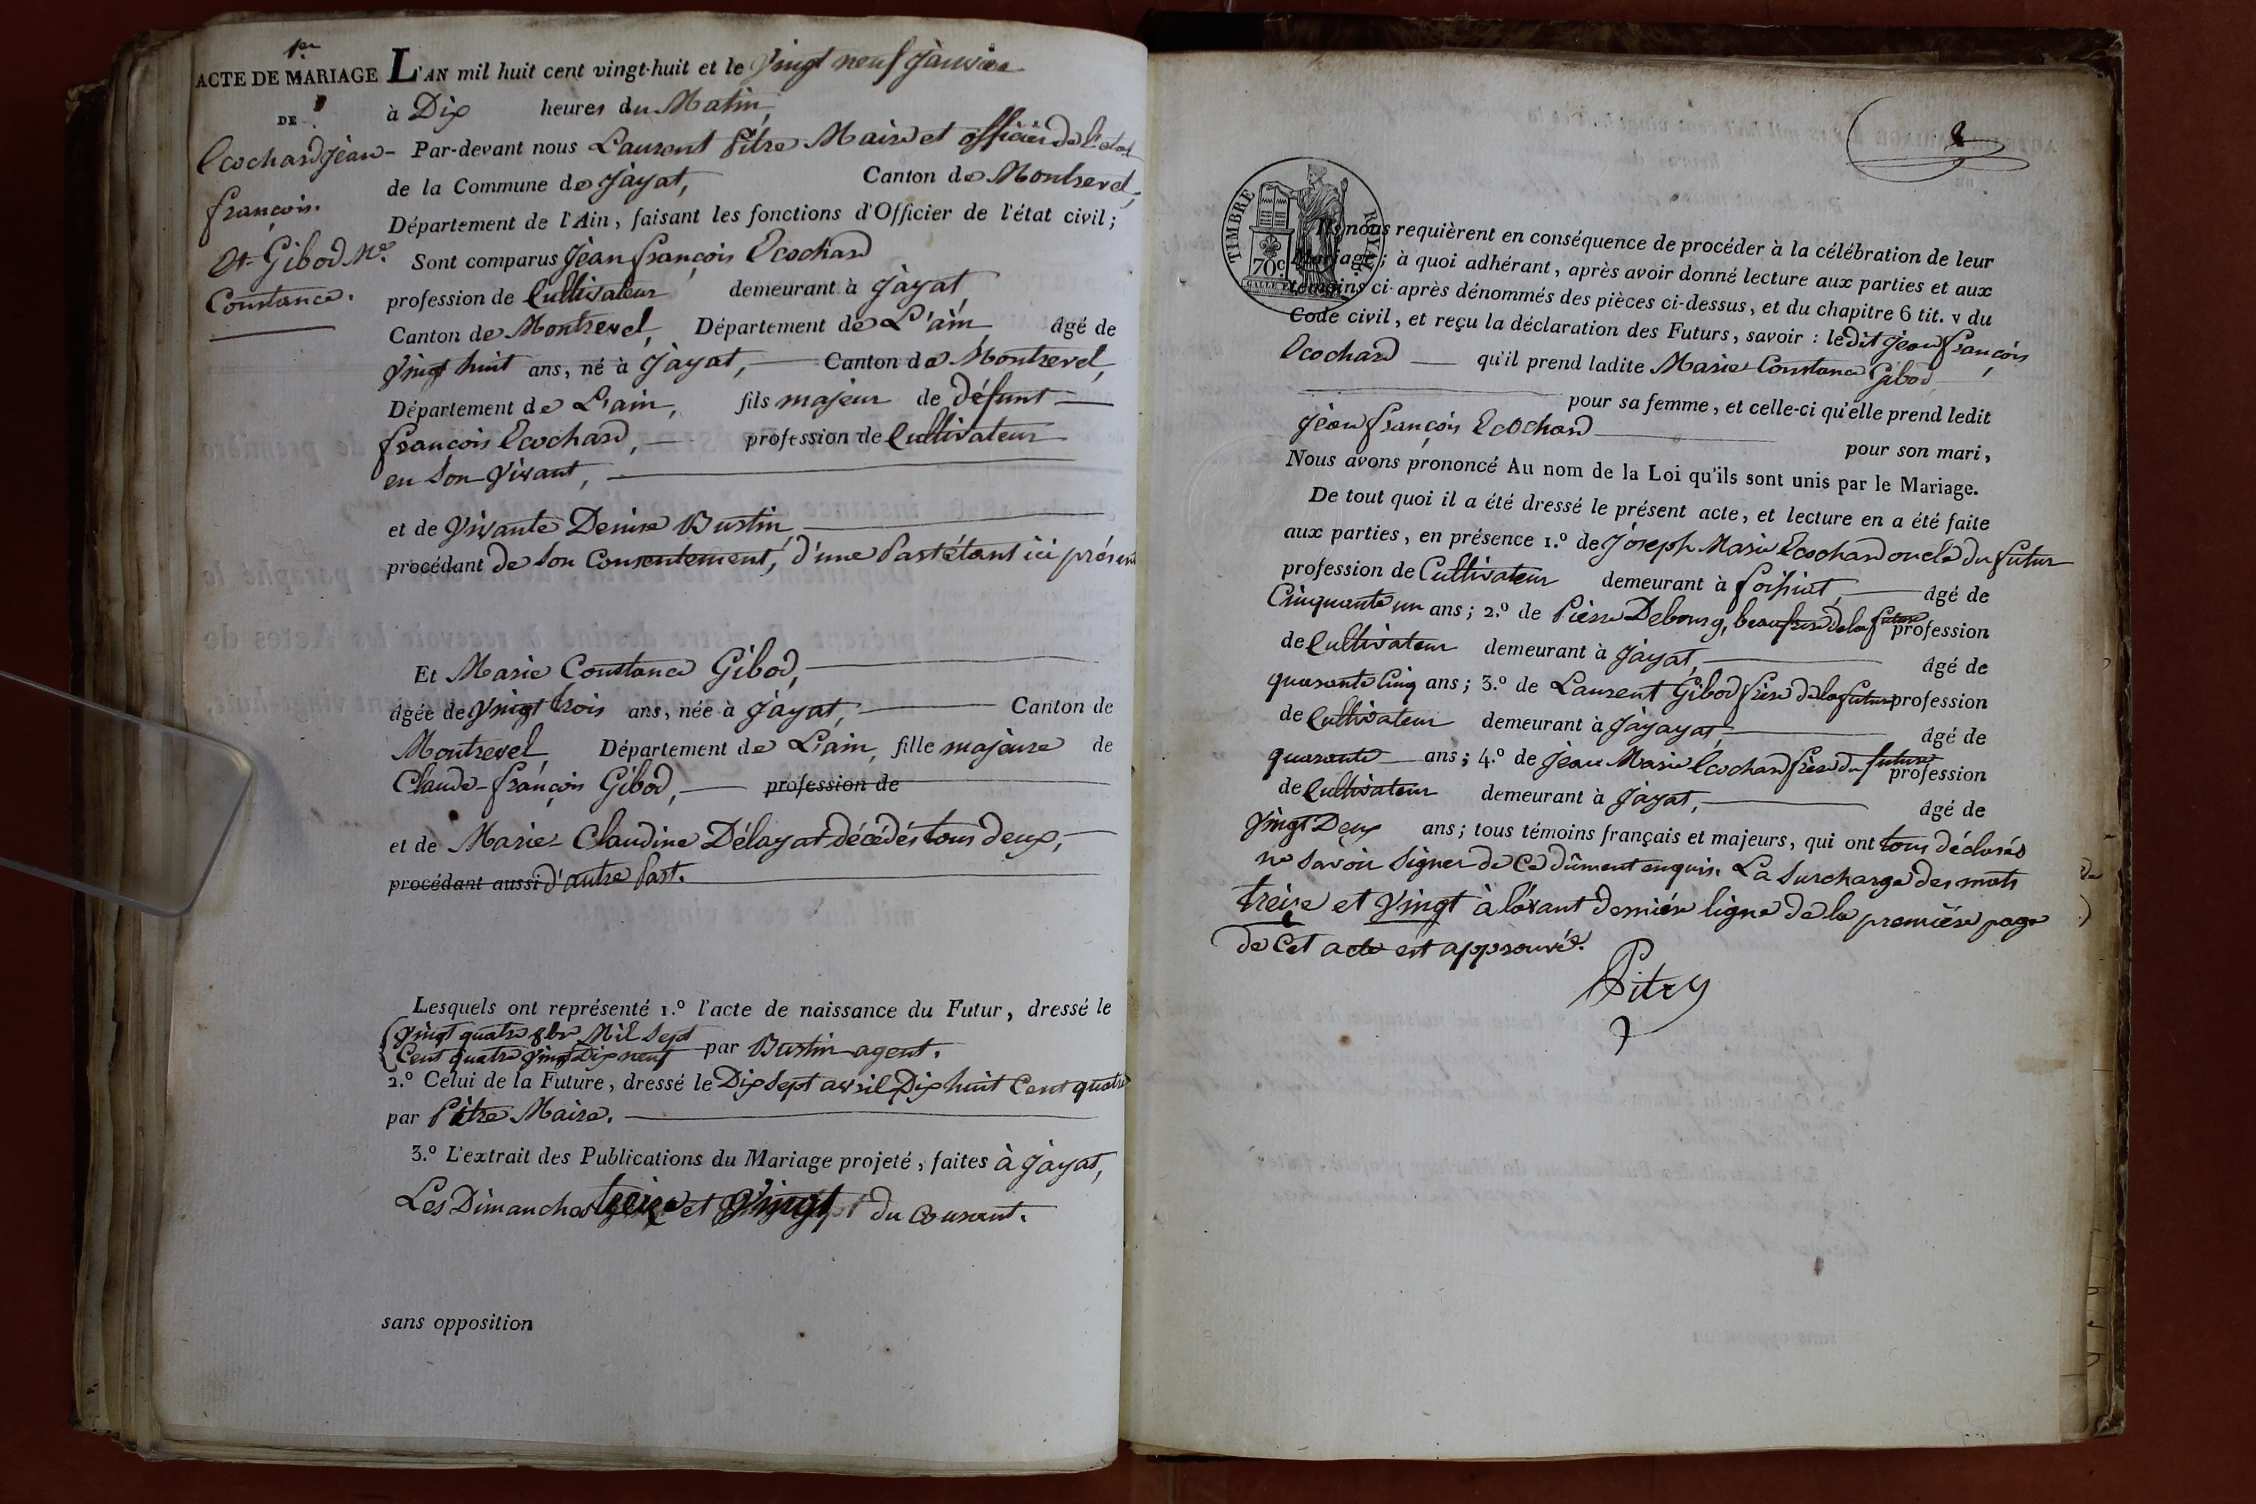 1er
ACTE DE MARIAGE
DE
Ecochard Jean-
françois.
Et Gibod Mie
Constance.
L'AN mil huit cent vingt-huit et le Vingt neuf Janvier
à Dix heures du Matin,
Par-devant nous Laurent Pitre Maire et officier de l'etat
de la Commune de Jayat, Canton de Montrevel,
Département de l'Ain, faisant les fonctions d'Officier de l'état civil;
Sont comparus Jean françois Ecochard
profession de Cultivateur demeurant à Jayat
Canton de Montrevel, Département de L'ain, âgé de
Vingt huit ans, né à Jayat, Canton de Montrevel,
Département de L'ain, fils majeur de défunt
françois Ecochard, profession de Cultivateur
en son Vivant,
et de Vivante Denise Bustin,
procédant de son Consentement, d'une Part étant ici présente
Et Marie Constance Gibod,
âgée de Vingt trois ans, née à Jayat, Canton de
Montrevel, Département de L'ain, fille majeure de
Claude-françois Gibod, profession de
et de Marie Claudine Délayat décédés tous deux,
procédant aussi d'autre Part.
Lesquels ont représenté 1.º l'acte de naissance du Futur, dressé le
Vingt quatre 8bre Mil Sept
Cent quatre Vingt Dix neuf par Bustin agent.
2.º Celui de la Future, dressé le Dix Sept avril Dix huit Cent quatre
par Pitre Maire.
3.º L'extrait des Publications du Mariage projeté, faites à Jayat,
Les Dimanches treize et Vingt du Courant.
sans opposition
2
TIMBRE ROYAL
70c
Ils nous requièrent en conséquence de procéder à la célébration de leur
Mariage; à quoi adhérant, après avoir donné lecture aux parties et aux
témoins ci-après dénommés des pièces ci-dessus, et du chapitre 6 tit. v du
Code civil, et reçu la déclaration des Futurs, savoir : ledit Jean françois
Ecochard qu'il prend ladite Marie Constance Gibod
pour sa femme, et celle-ci qu'elle prend ledit
Jean françois Ecochard pour son mari,
Nous avons prononcé Au nom de la Loi qu'ils sont unis par le Mariage.
De tout quoi il a été dressé le présent acte, et lecture en a été faite
aux parties, en présence 1.º de Joseph Marie Ecochard oncle du futur
profession de Cultivateur demeurant à foissiat, âgé de
Cinquante un ans; 2.º de Pierre Debourg, beaufrere de la future profession
de Cultivateur demeurant à Jayat, âgé de
quarante Cinq ans; 3.º de Laurent Gibod frère de la future profession
de Cultivateur demeurant à Jayayat, âgé de
quarante ans; 4.º de Jean Marie Ecochard frère du future profession
de Cultivateur demeurant à Jayat, âgé de
Vingt Deux ans; tous témoins français et majeurs, qui ont tous déclarés
ne Savoir Signer de Ce dûment enquis. La Surcharge des mots
treize et Vingt à l'avant dernière ligne de la première page
de Cet acte est approuvée.
Pitre